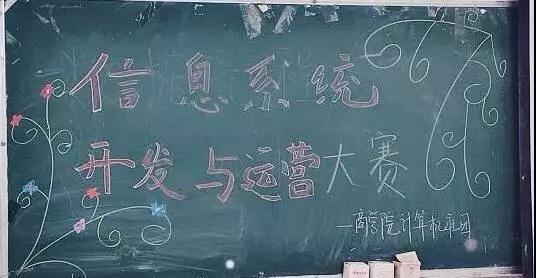 信息系统
开发与运营大赛
—商学院计算机社团